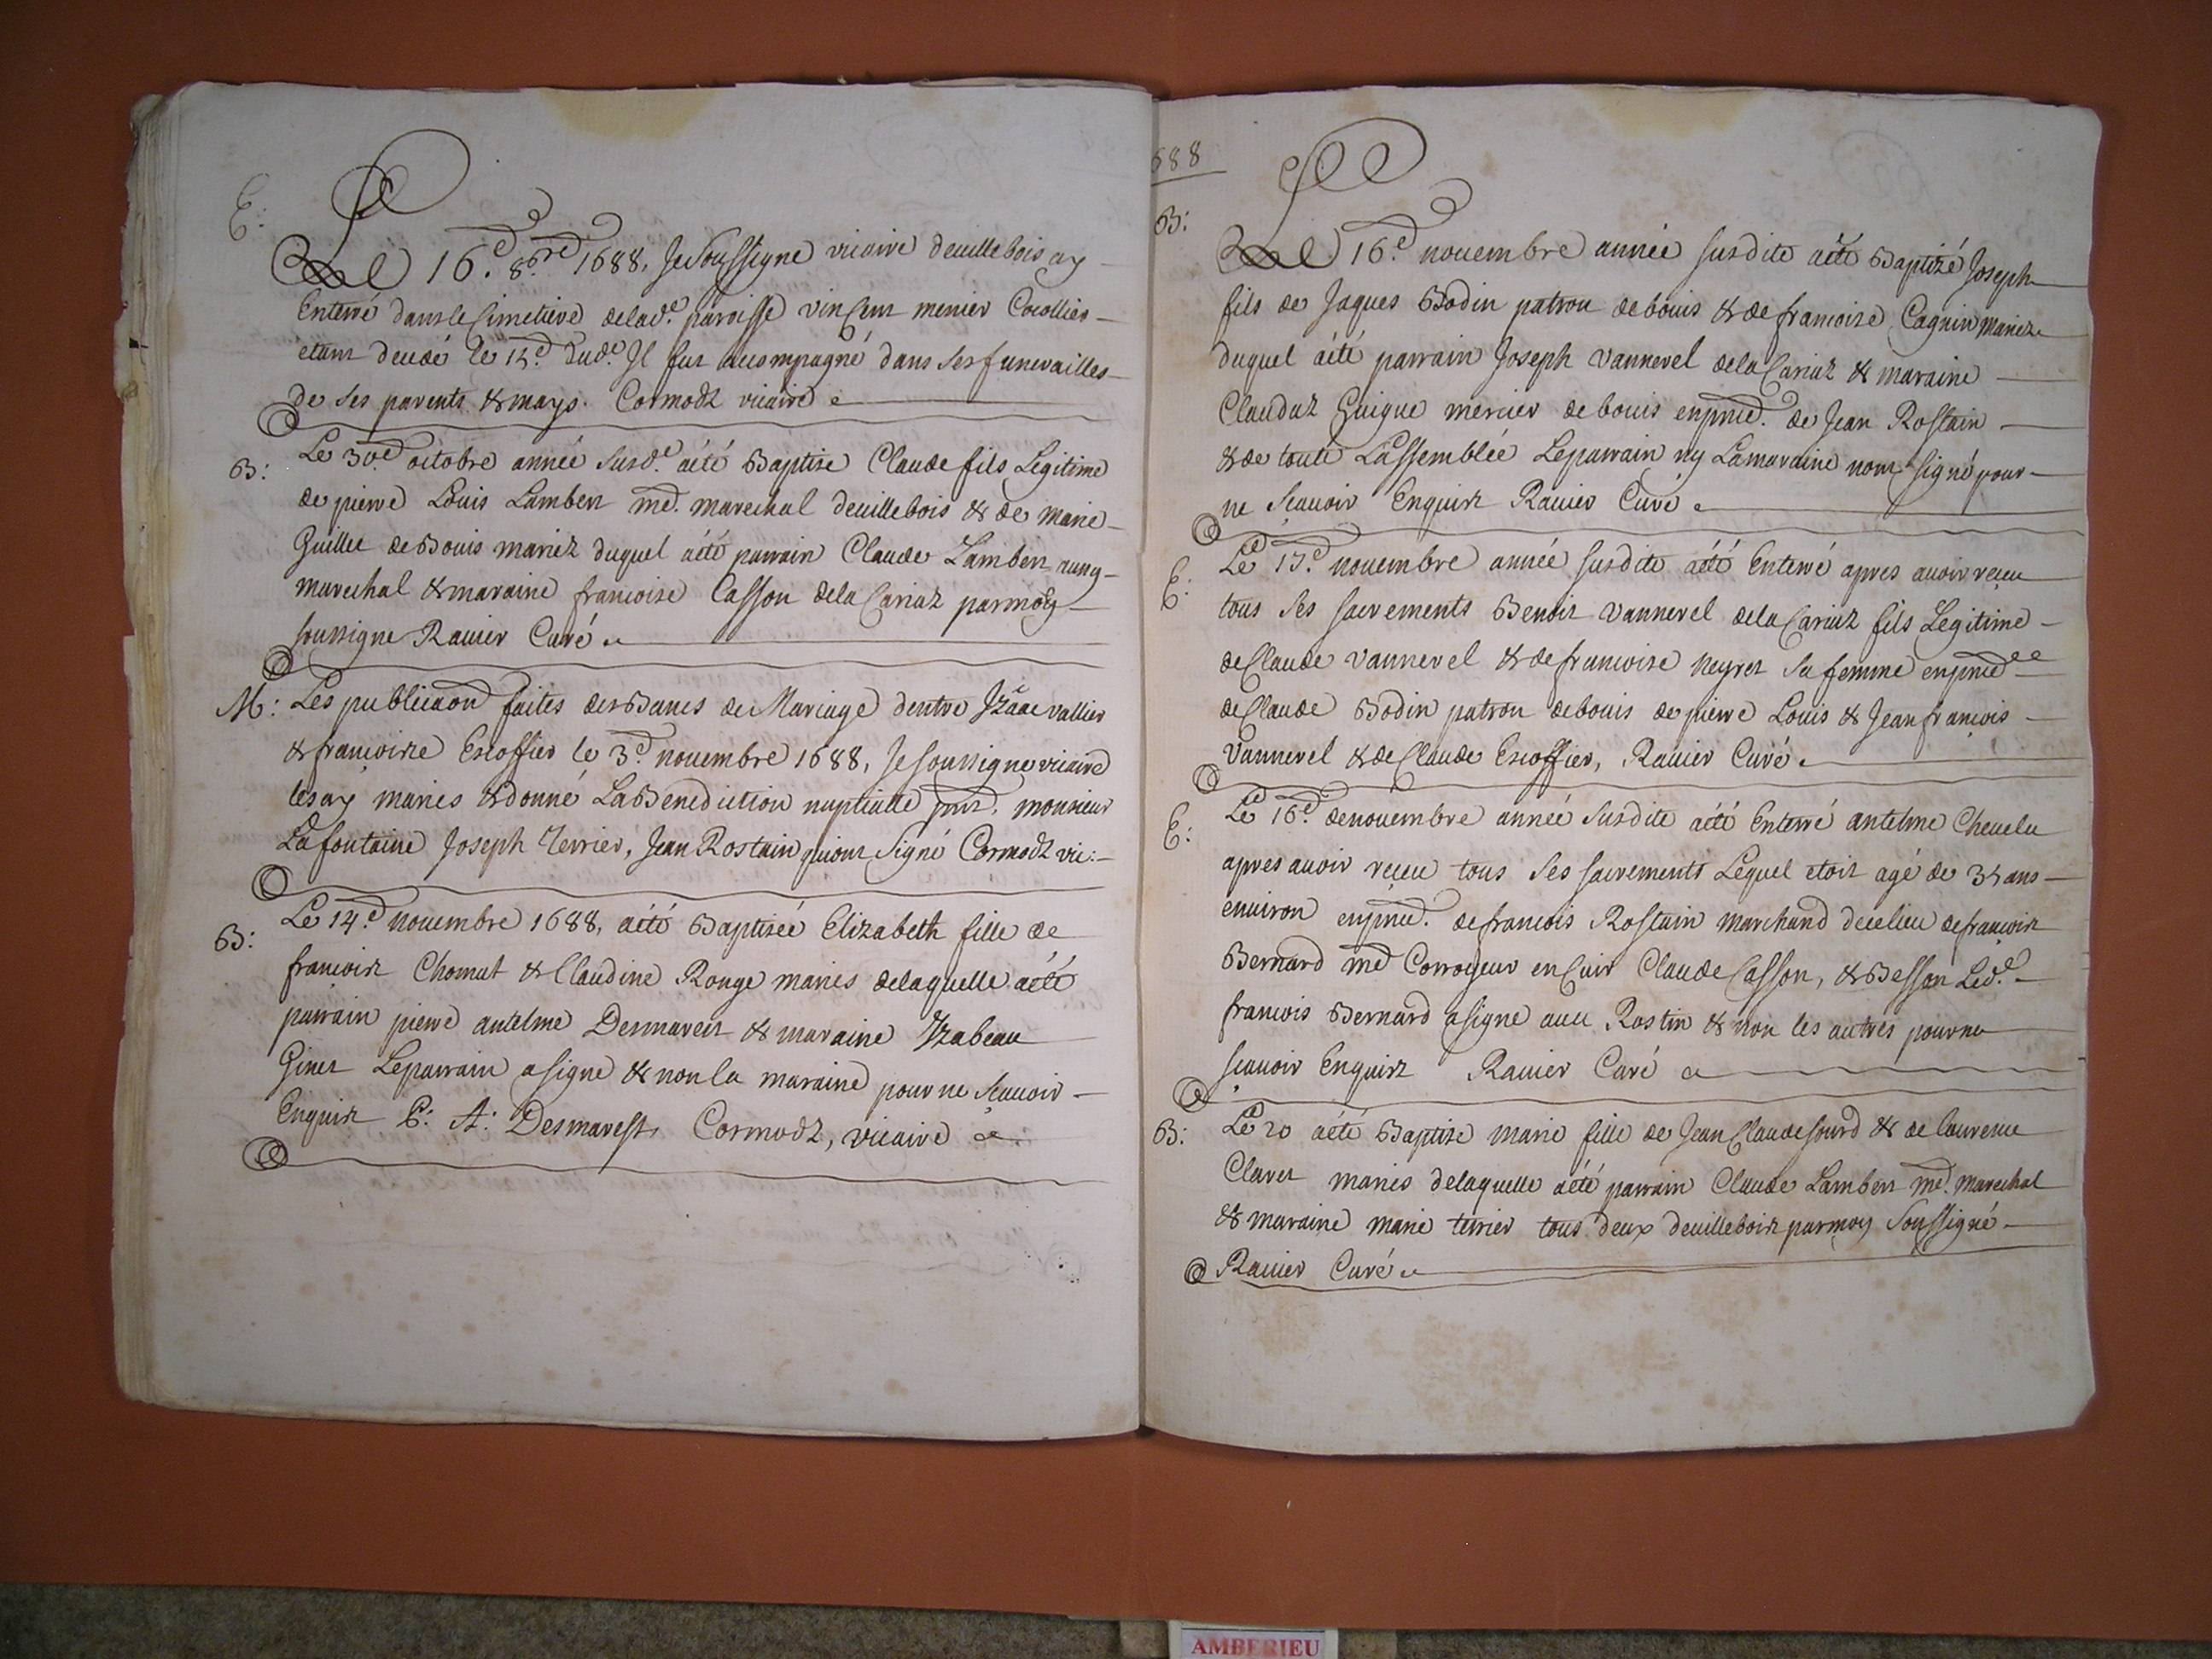 E:
Le 16.e 8bre 1688, Je Soussigne vicaire deuillebois ay
Enterré dans le Cimetiere delad.e paroisse vincent menier
etant decedé le 15.e dud.e Il fut accompagné dans ses funerailles
de ses parents & mays. Cormodz vicaire
B: Le 30.e octobre année Susd.e aété Baptise Claude fils Legitime
de pierre Louis Lambert md. marechal deuillebois & de marie
Guillet de Bouis mariez duquel aété parrain Claude Lambert
marechal & maraine francoise Casson dela Cariaz parmoy
soussigne Rauier Curé
M: Les publicaon faites des Bancs de Mariage dentre Izaac vallier
& francoise Escoffier le 3.e nouembre 1688, Je soussigne vicaire
lesay maries & donné La Benediction nuptialle pnt. monsieur
Lafontaine Joseph Terrier, Jean Rostain quiont Signé Cormodz vic:
B: Le 14.e nouembre 1688, aété Baptiseé Elizabeth fille de
francois Chomut & Claudine Rouge maries delaquelle aété
parrain pierre antelme Desmarest & maraine Yzabeau
Ginet Leparrain asigne & non la maraine pour ne scauoir
Enquis P: A: Desmarest, Cormodz, vicaire
688
B:
Le 16.e nouembre année susdite aété Baptizé Joseph
fils de Jaques Bodin patron debouis & de francoise Cagnin mariez
duquel aété parrain Joseph Vannerel dela Cariaz & maraine
Claudaz Guigue mercier de bouis enpnce. de Jean Rostain
& de toute Lassembleé Leparrain ny Lamaraine nont signé pour
ne scauoir Enquis Rauier Curé
E: Le 17.e nouembre année susdite aété Enterré apres auoir reçeu
tous ses sacrements Benoit Vannerel dela Cariaz fils Legitime
de Claude Vannerel & de francoise Neyret sa femme enpnce
de Claude Bodin patron debouis de pierre Louis & Jean francois
Vannerel & de Claude Escoffier, Rauier Curé
E: Le 16.e denouembre année susdite aété Enterré antelme Cheuelu
apres auoir reçeu tous ses sacrements Lequel etoit agé de 35 ans
enuiron enpnce. defrancois Rostain marchand decelieu defrancois
Bernard md Corroyeur en Cuir Claude Casson, & Besson Led.e
francois Bernard asigne auec Rostin & non les autres pour ne
scauoir Enquis Rauier Curé
B: Le 20 aété Baptize Marie fille de Jean Claude sourd & de laurence
Claret maries delaquelle aété parrain Claude Lambert md. marechal
& maraine marie terrier tous deux deuillebois parmoy Soussigné
Rauier Curé
AMBERIEU